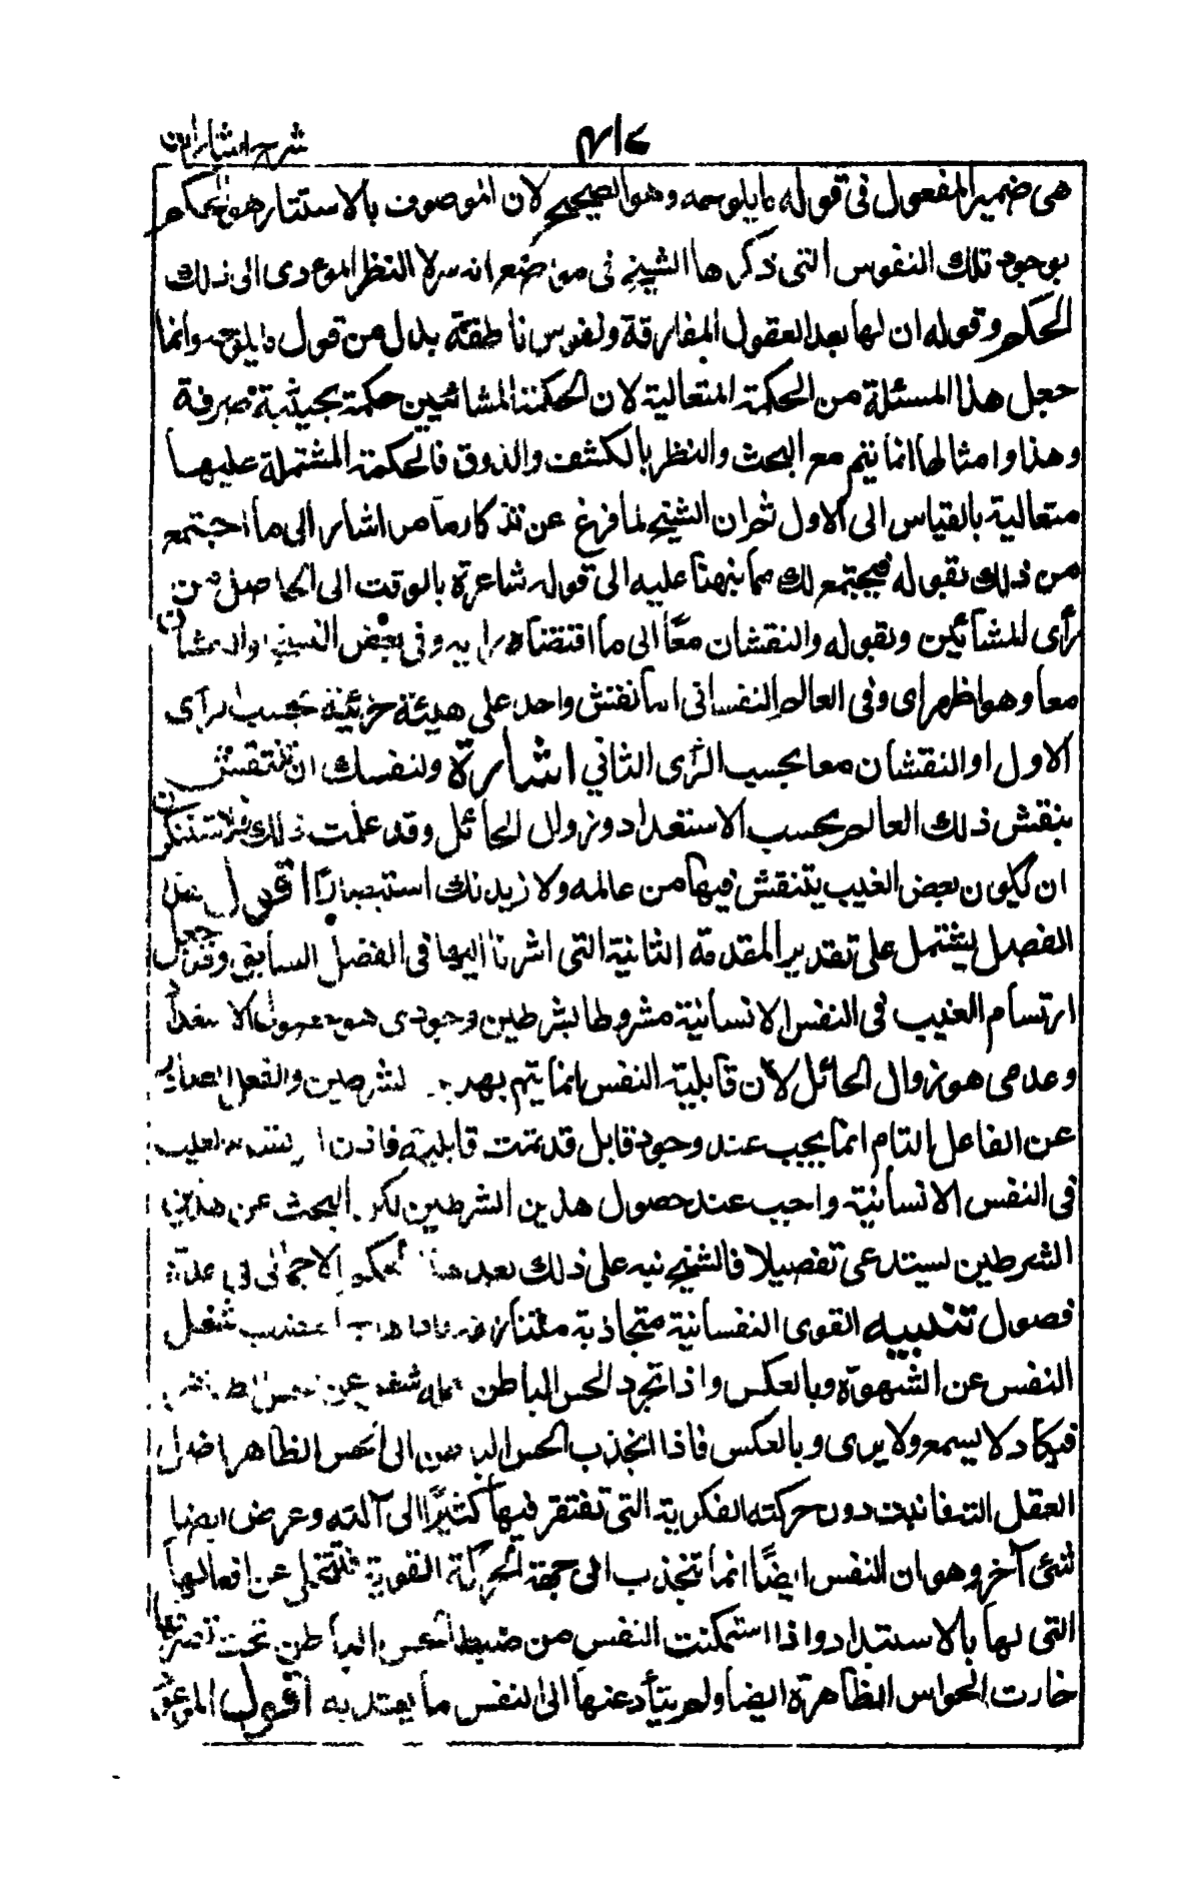 شرح اشارات
هى ضمير المفعول فى قوله ما يلوحه وهو الصحيح لان الموصوف بالاستتار هو الحكم
بوجود تلك النفوس التى ذكرها الشيخ فى موضع انه سرلا النظر المؤدى الى ذلك
الحكم وقوله ان لها بعد العقول المفارقة ونفوس ناطقة بدل من قول ما يلوحه وانما
جعل هذا المسئلة من الحكمة المتعالية لان الحكمة المشائيين حكمة بحيثية صرفة
وهذا وامثالها انما يتم مع البحث والنظر بالكشف والذوق فالحكمة المشتملة عليها
متعالية بالقياس الى الاول ثم ان الشيخ لما فرغ عن تذكار ما مر اشار الى ما اجتمع
من ذلك بقوله فيجتمع لك مما نبهنا عليه الى قوله شاعرة بالوقت الى الحاصل من
رأى المشائين وبقوله والنقشان معا الى ما اقتضاه رايه وفى بعض النسخ والنقشان
معا وهو اظهر اى وفى العالم النفسانى اما نقش واحد على هيئة جزئية بحسب الرأى
الاول او النقشان معا بحسب الرأى الثاني اشارة ولنفسك ان تنتقش
بنقش ذلك العالم بحسب الاستعداد وزوال الحائل وقد علمت ذلك فلا تستنكرن
ان يكون بعض الغيب يتنقش فيها من عالمه ولازيدنك استبصارًا اقول هذا
الفصل يشتمل على تقدير المقدمة الثانية التى اشرنا اليها فى الفصل السابق وقد جعل
ارتسام الغيب فى النفس الانسانية مشروطا بشرطين وجودى هو حصول الاستعداد
وعدمى هو زوال الحائل لان قابلية النفس انما يتم بهذين الشرطين والفعل الصادر
عن الفاعل التام انما يجب عند وجود قابل قد تمت قابليته فاذن ارتسام الغيب
فى النفس الانسانية واجب عند حصول هذين الشرطين لكن البحث عن هذين
الشرطين يستدعى تفصيلا فالشيخ نبه على ذلك بعد هذا الحكم الاجمالى فى عدة
فصول تنبيه القوى النفسانية متجاذبة متنازعة فاذا هاج الغضب شغل
النفس عن الشهوة وبالعكس واذا تجرد الحس الباطن لعمله شغل عن الحس الظاهر
فيكاد لا يسمع ولا يرى وبالعكس فاذا انجذب الحس الباطن الى الحس الظاهر امال
العقل التفانبت دون حركته الفكرية التى تفتقر فيها كثيرًا الى آلته وعرض ايضا
شئ آخر وهو ان النفس ايضًا انما تنجذب الى جهة الحركة القوية فتتخلى عن افعالها
التى لها بالاستبداد واذا استمكنت النفس من ضبط الحس الباطن تحت تصرفها
خارت الحواس الظاهرة ايضا ولم يتأد عنها الى النفس ما يعتد به اقول